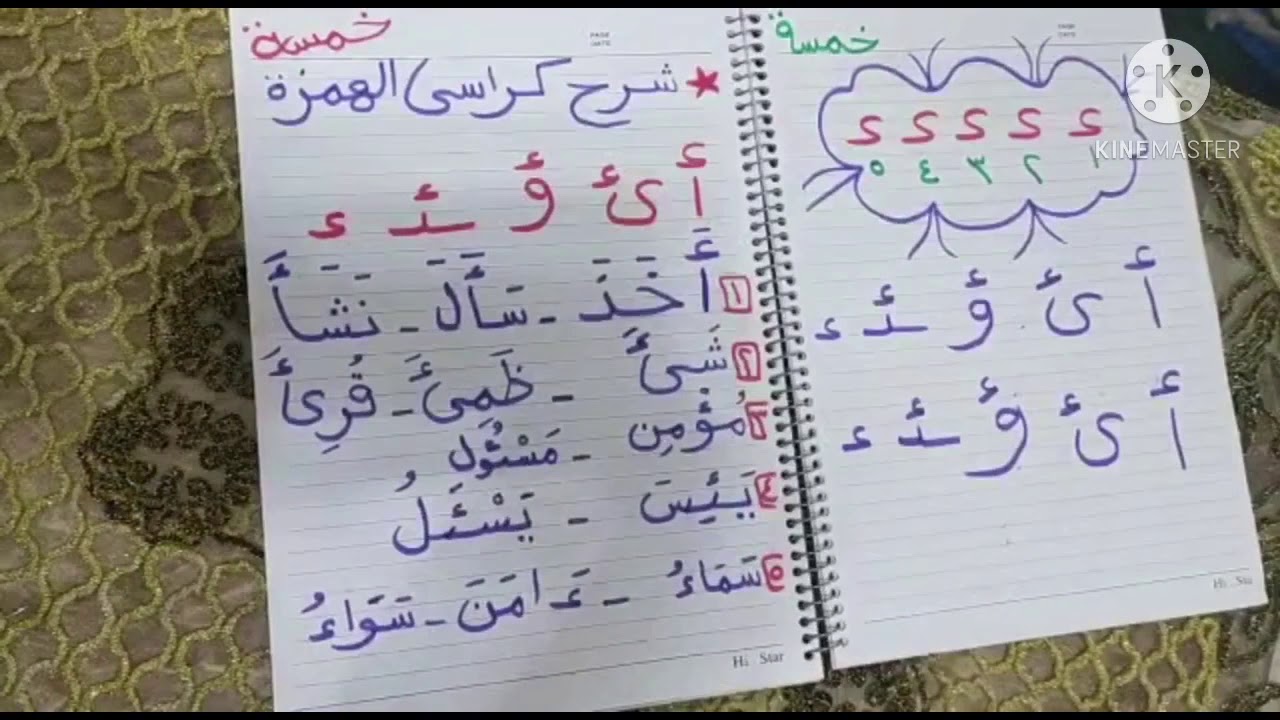 خمسة
ء ء ء ء ء
١ ٢ ٣ ٤ ٥
أ ئ ؤ ـئـ ء
أ ئ ؤ ـئـ ء
خمسة
★ شرح كراسى الهمزة
أ ئ ؤ ـئـ ء
١ أَخَذَ - سَأَلَ - نَشَأَ
٢ شَىئَ - ظَمِئَ - قُرِئَ
٣ مُؤْمِن - مَسْئُول
٤ يَئِسَ - يَسْئَلُ
٥ سَمَاءُ - ءَامَنَ - سَوَاءُ
PAGE
DATE
PAGE
DATE
Hi Star
KINEMASTER